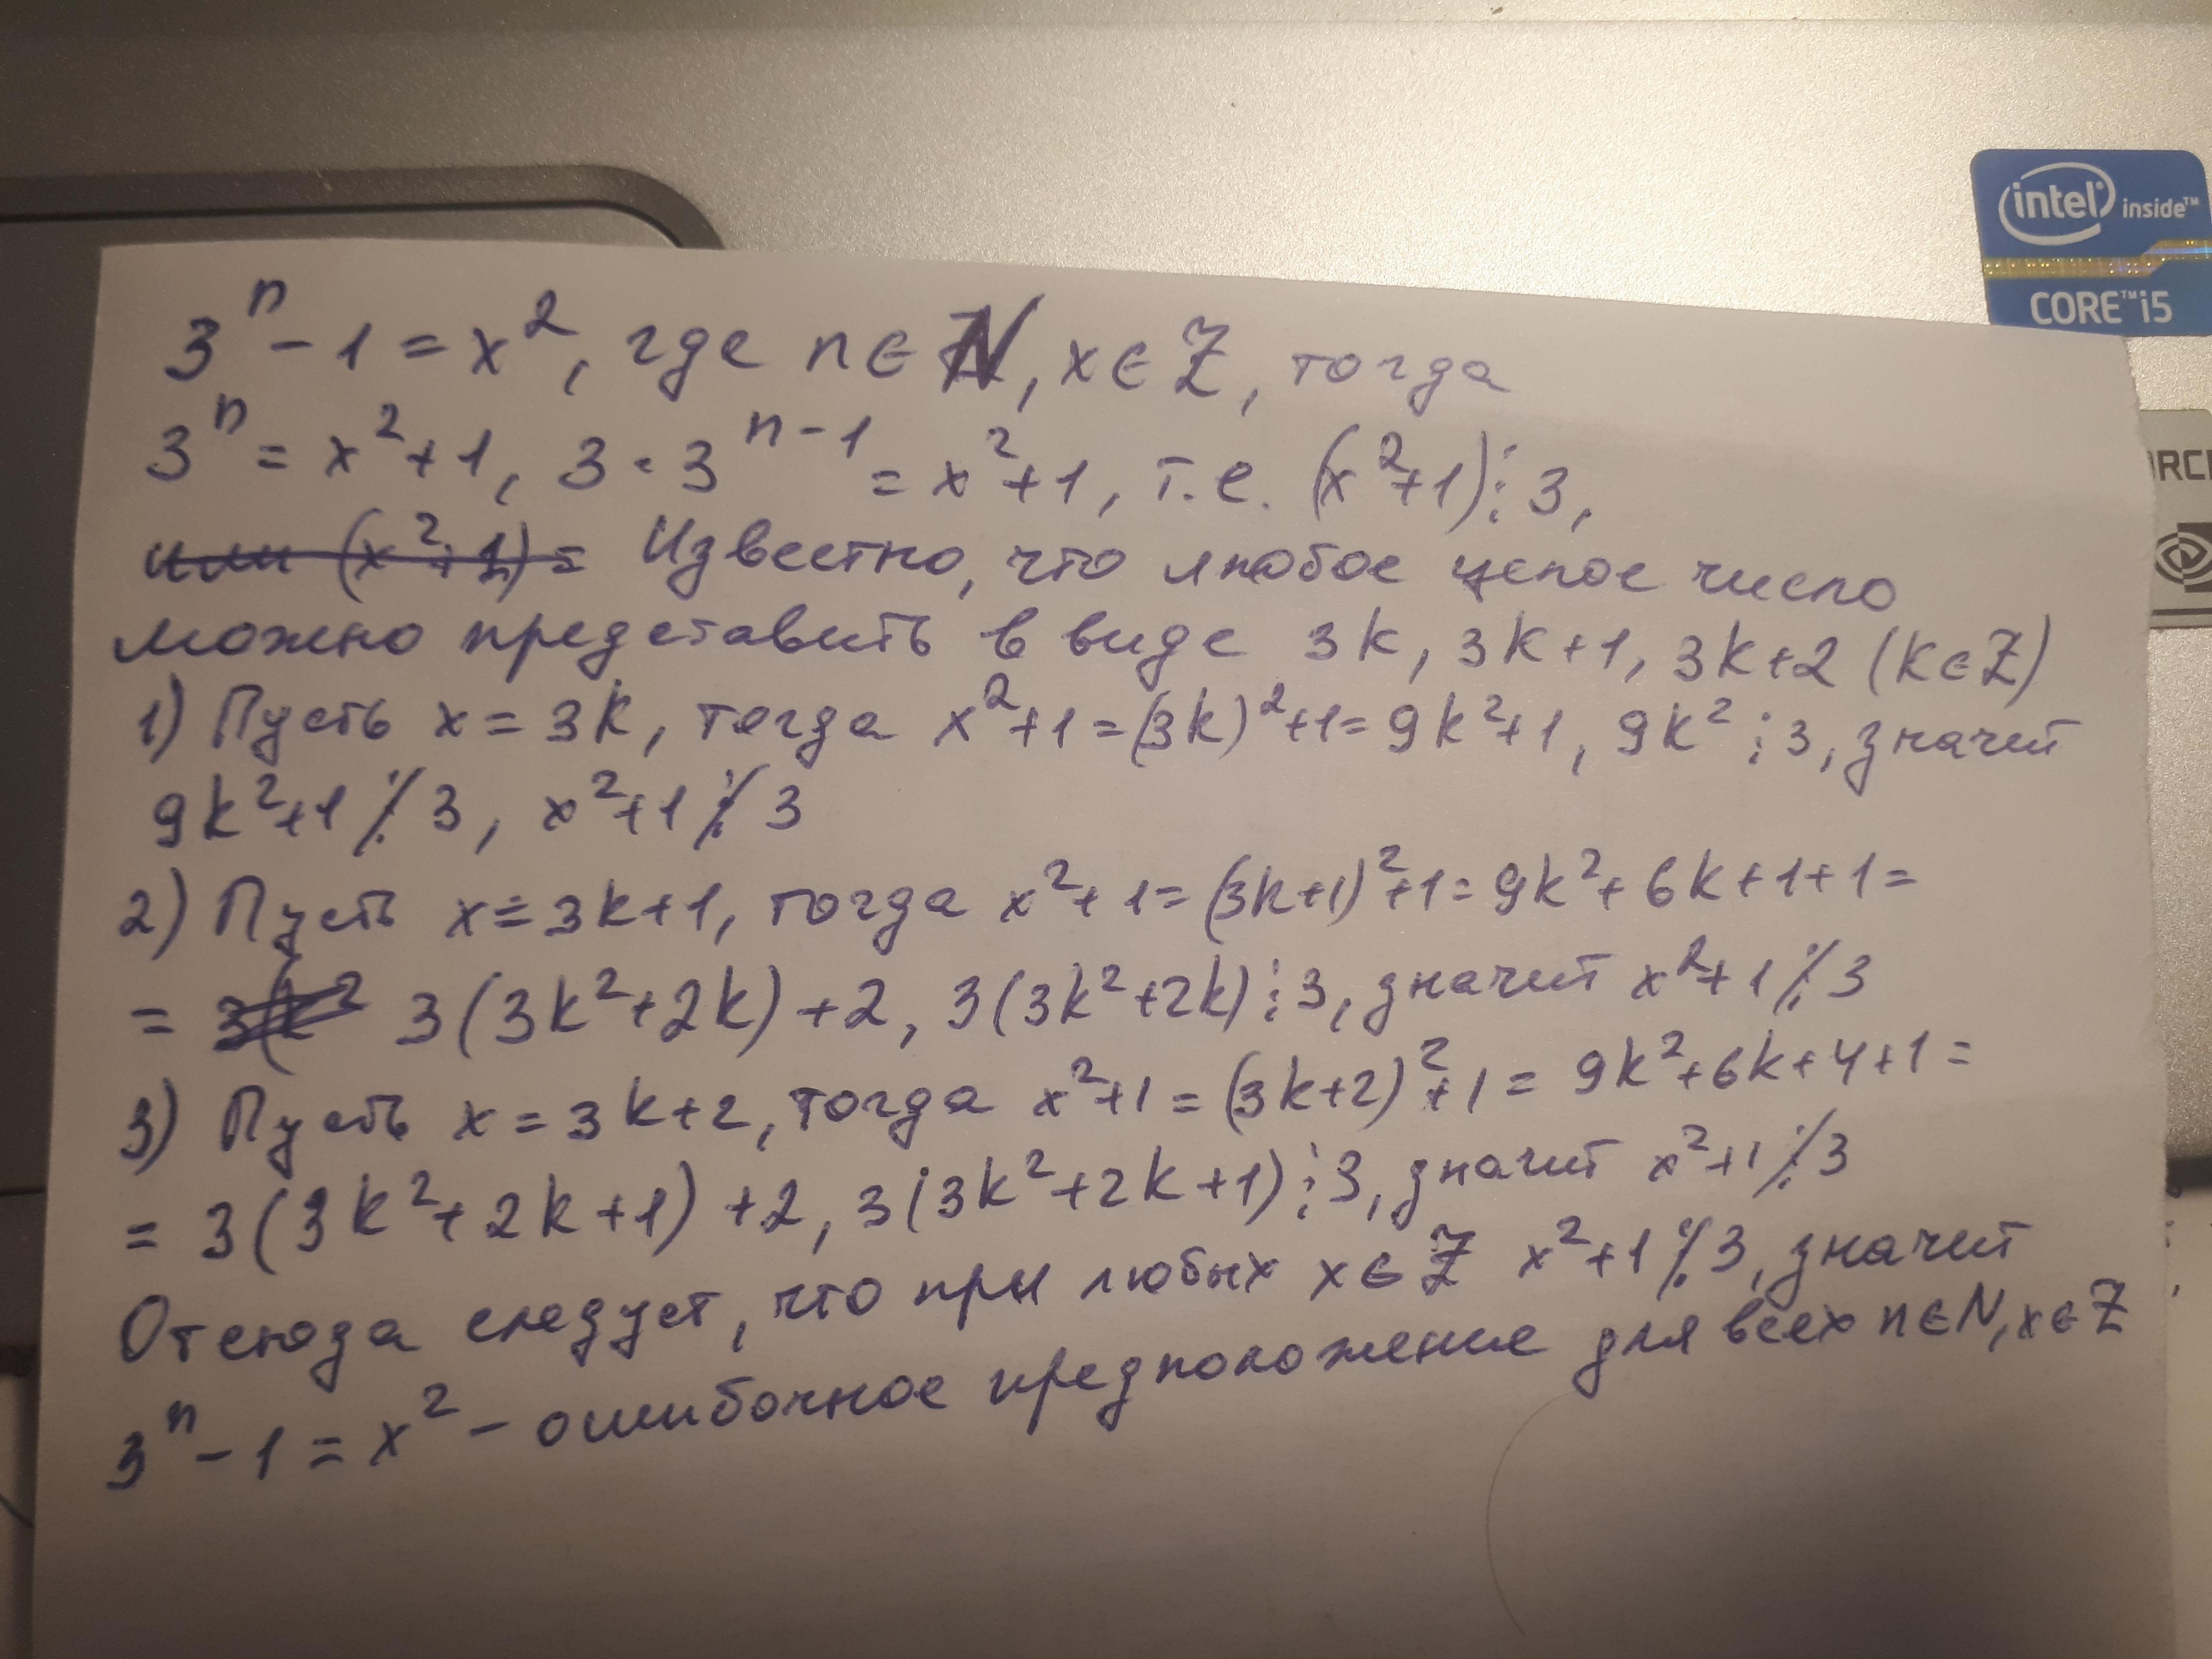 intel inside™
CORE™ i5
ORC
3ⁿ - 1 = x², где n ∈ N, x ∈ Z, тогда
3ⁿ = x² + 1, 3 · 3ⁿ⁻¹ = x² + 1, т.е. (x² + 1) ⋮ 3,
или (x² + 1) = Известно, что любое целое число
можно представить в виде 3k, 3k+1, 3k+2 (k ∈ Z)
1) Пусть x = 3k, тогда x² + 1 = (3k)² + 1 = 9k² + 1, 9k² ⋮ 3, значит
9k² + 1 ⋮̸ 3, x² + 1 ⋮̸ 3
2) Пусть x = 3k+1, тогда x² + 1 = (3k+1)² + 1 = 9k² + 6k + 1 + 1 =
= 3(k² 3(3k² + 2k) + 2, 3(3k² + 2k) ⋮ 3, значит x² + 1 ⋮̸ 3
3) Пусть x = 3k+2, тогда x² + 1 = (3k+2)² + 1 = 9k² + 6k + 4 + 1 =
= 3(3k² + 2k + 1) + 2, 3(3k² + 2k + 1) ⋮ 3, значит x² + 1 ⋮̸ 3
Отсюда следует, что при любых x ∈ Z x² + 1 ⋮̸ 3, значит
3ⁿ - 1 = x² - ошибочное предположение для всех n ∈ N, x ∈ Z